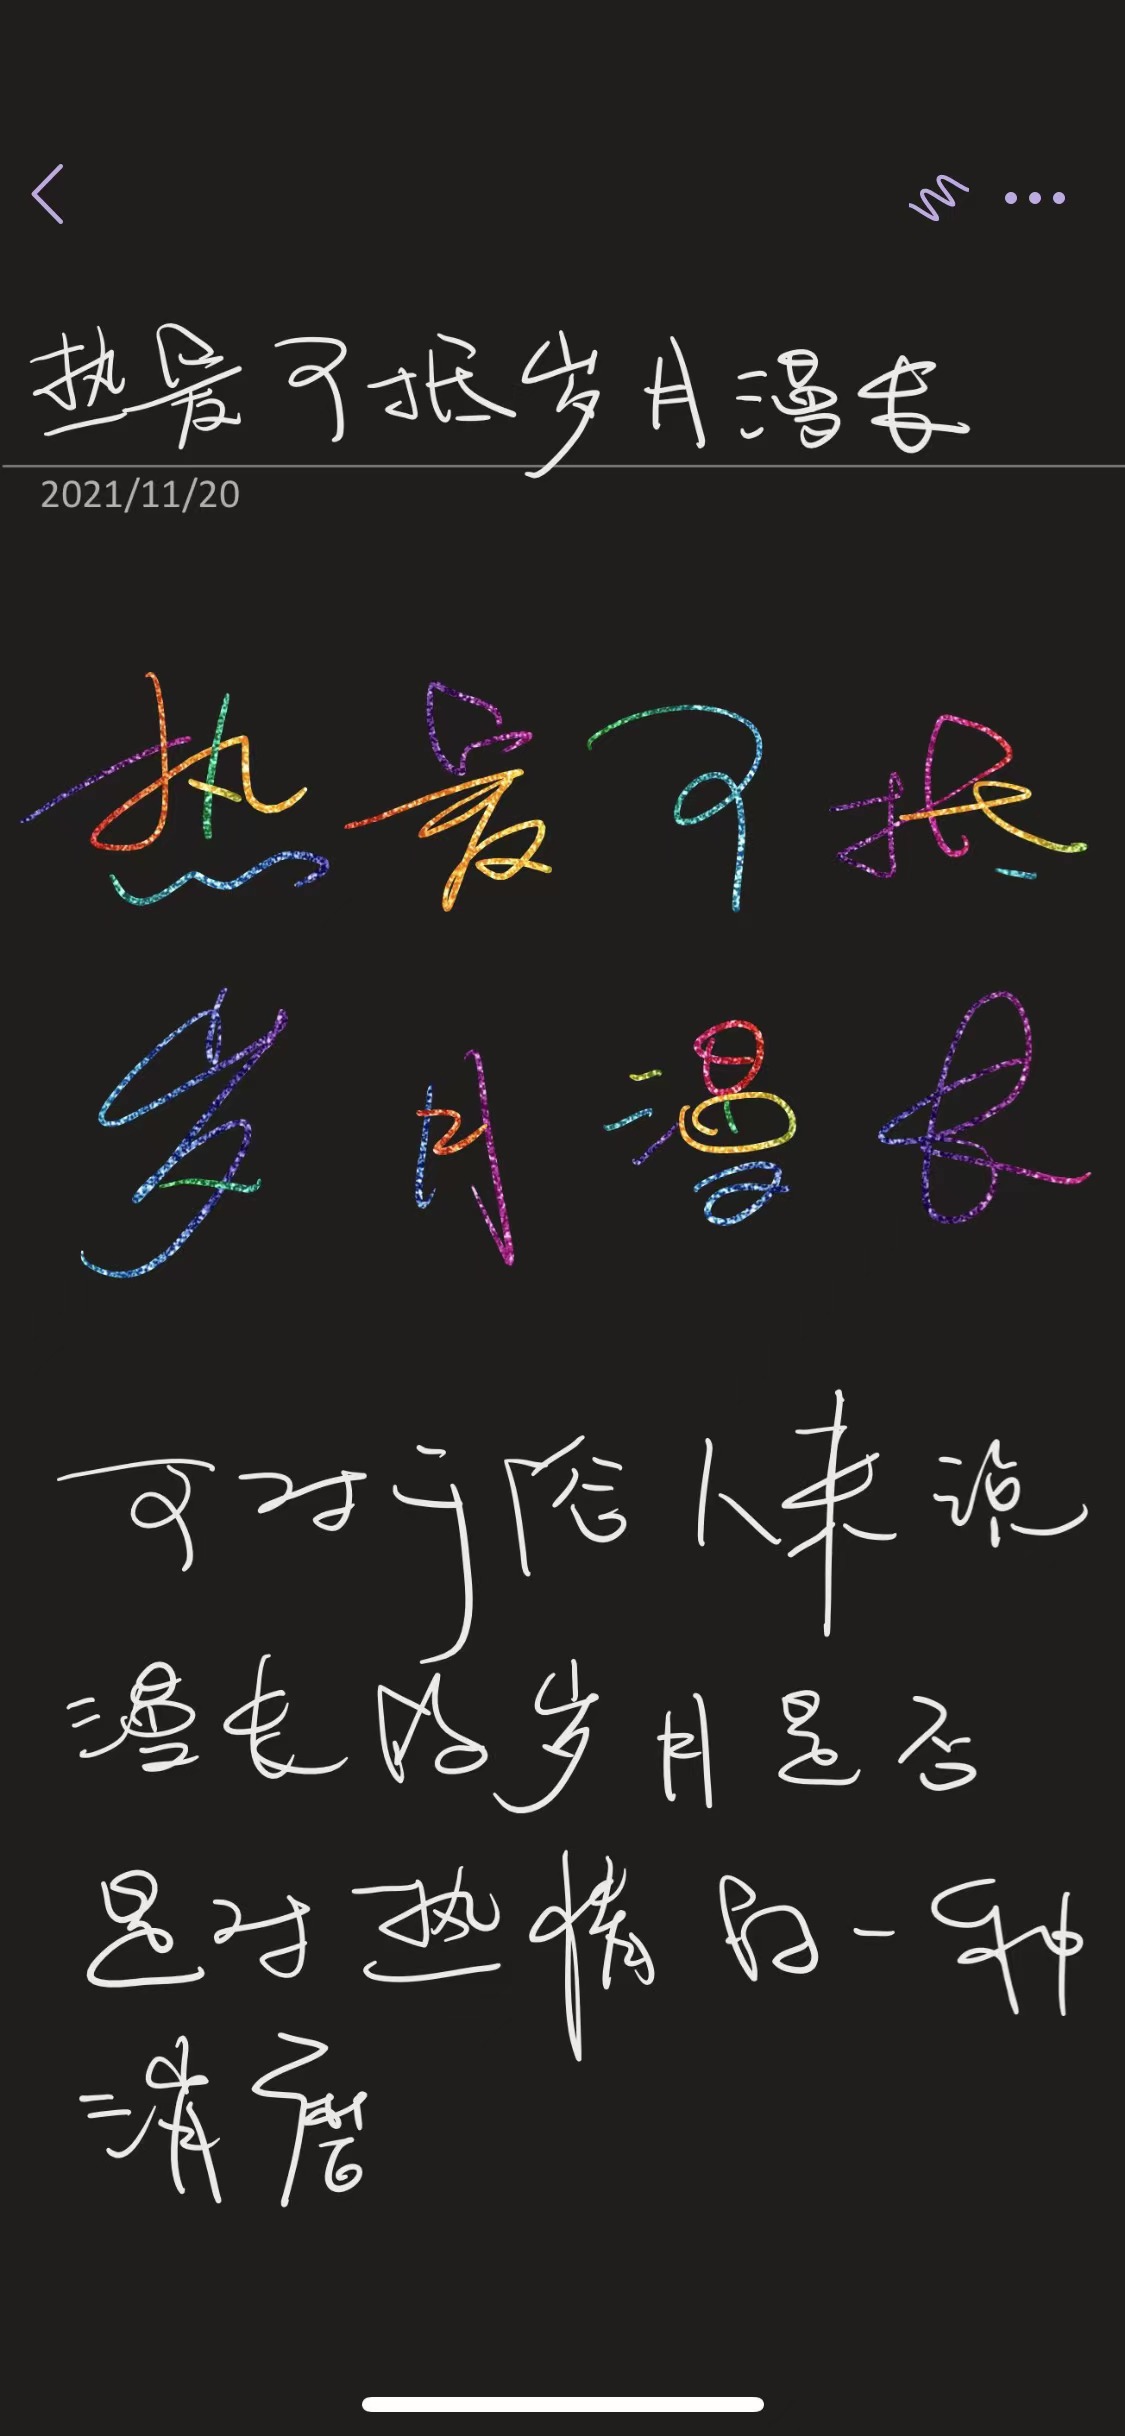 热爱可抵岁月漫长
2021/11/20
热爱可抵
岁月漫长
可对于俗人来说
漫长的岁月是否
是对热情的一种
消磨